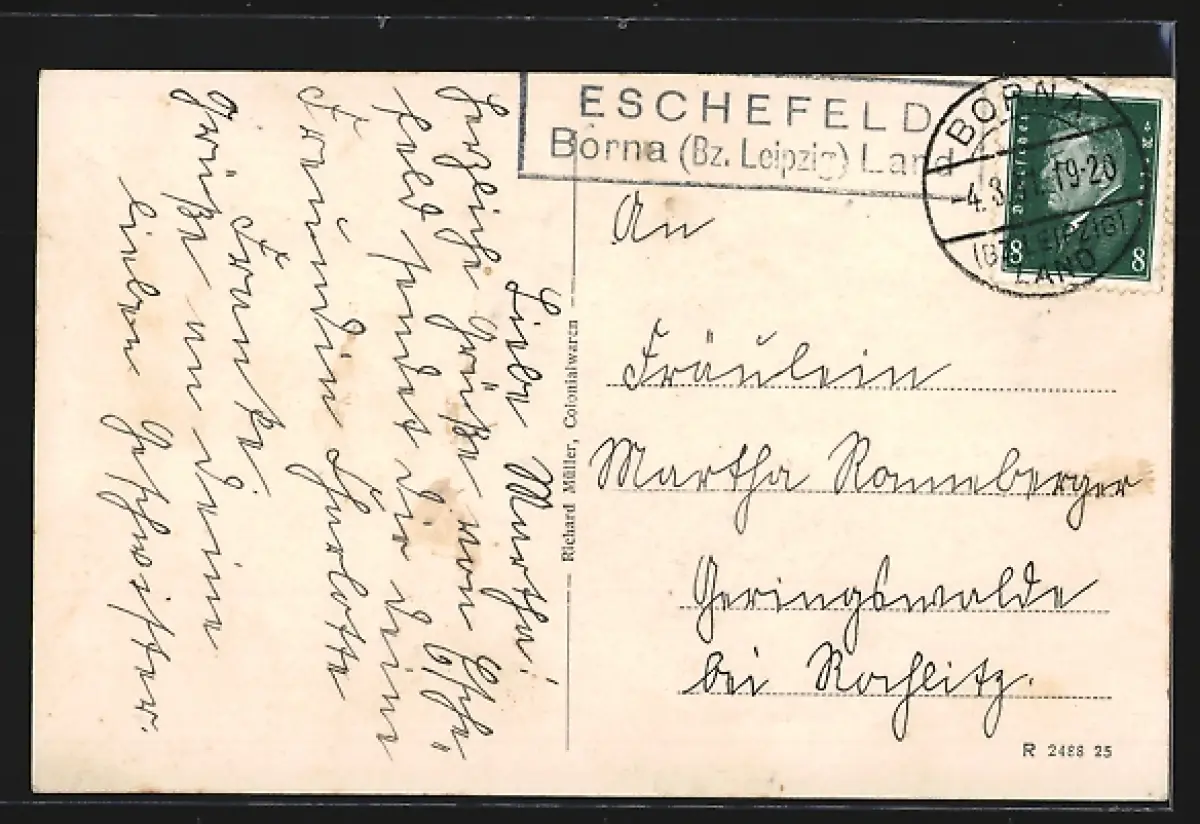 ESCHEFELD
Borna (Bz. Leipzig) Land
BORNA
-4.3. 19-20
(BZ. LEIPZIG)
LAND
Deutsches Reich
8 8
An
Fräulein
Martha Ranneberger
Geringswalde
bei Rochlitz.
R 2488 25
Richard Müller, Colonialwaren
Liebe Martha!
Herzliche Grüße vom Esche-
feld sendet dir deine
Freundin Charlotte
Franke
Grüße an deine
lieben Geschwister.